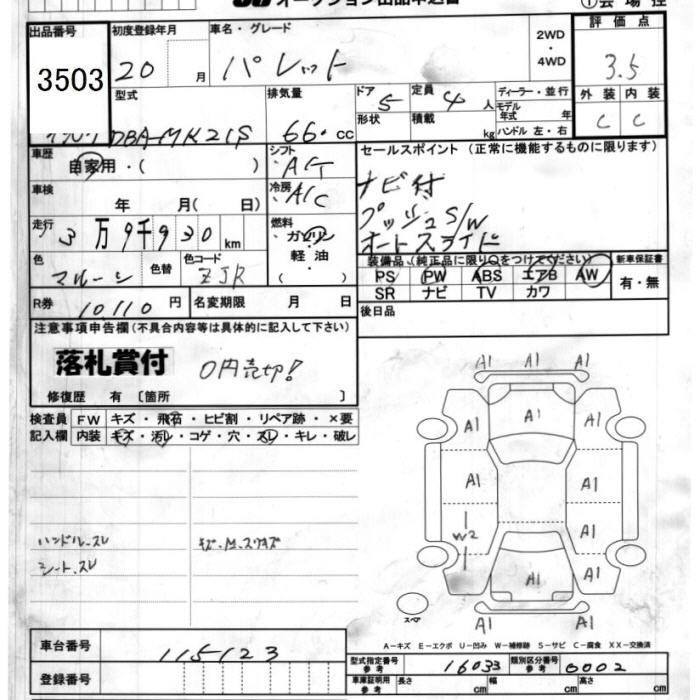 オークション出品申込書
①会場控
出品番号
3503
初度登録年月
20 月
車名・グレード
パレット
2WD
・
4WD
評価点
3.5
型式
DBA-MK21S
排気量
660 cc
ドア
5
定員
4 人
形状
積載 kg
ディーラー・並行
モデル年式 年
ハンドル 左・右
外装 内装
C C
車歴
自家用・( )
シフト
冷房
A/C
セールスポイント (正常に機能するものに限ります)
ナビ付
プッシュS/W
オートスライド
車検
年 月( 日)
走行
3万9千930 km
燃料
ガソリン
軽油
・( )
色
マルーン
色替
色コード
ZJR
装備品(純正品に限り○をつけてください)
PS PW ABS エアB AW
SR ナビ TV カワ
新車保証書
有・無
R券
10110 円
名変期限 月 日
後日品
注意事項申告欄(不具合内容等は具体的に記入して下さい)
落札賞付
0円売切!
修復歴 有 〔箇所 〕
検査員
記入欄
FW キズ・飛石・ヒビ割・リペア跡・×要
内装 キズ・汚レ・コゲ・穴・スレ・キレ・破レ
ハンドルスレ
シートスレ
A1 A1 A1
A1 A1 A1
A1 A1
A1
W2
A1
A1
A1 A1
スペア
A-キズ E-エクボ U-凹み W-補修跡 S-サビ C-腐食 XX-交換済
車台番号
115123
登録番号
型式指定番号
参考
16033
類別区分番号
参考
0002
車庫証明用
参考
長さ cm
幅 cm
高さ cm